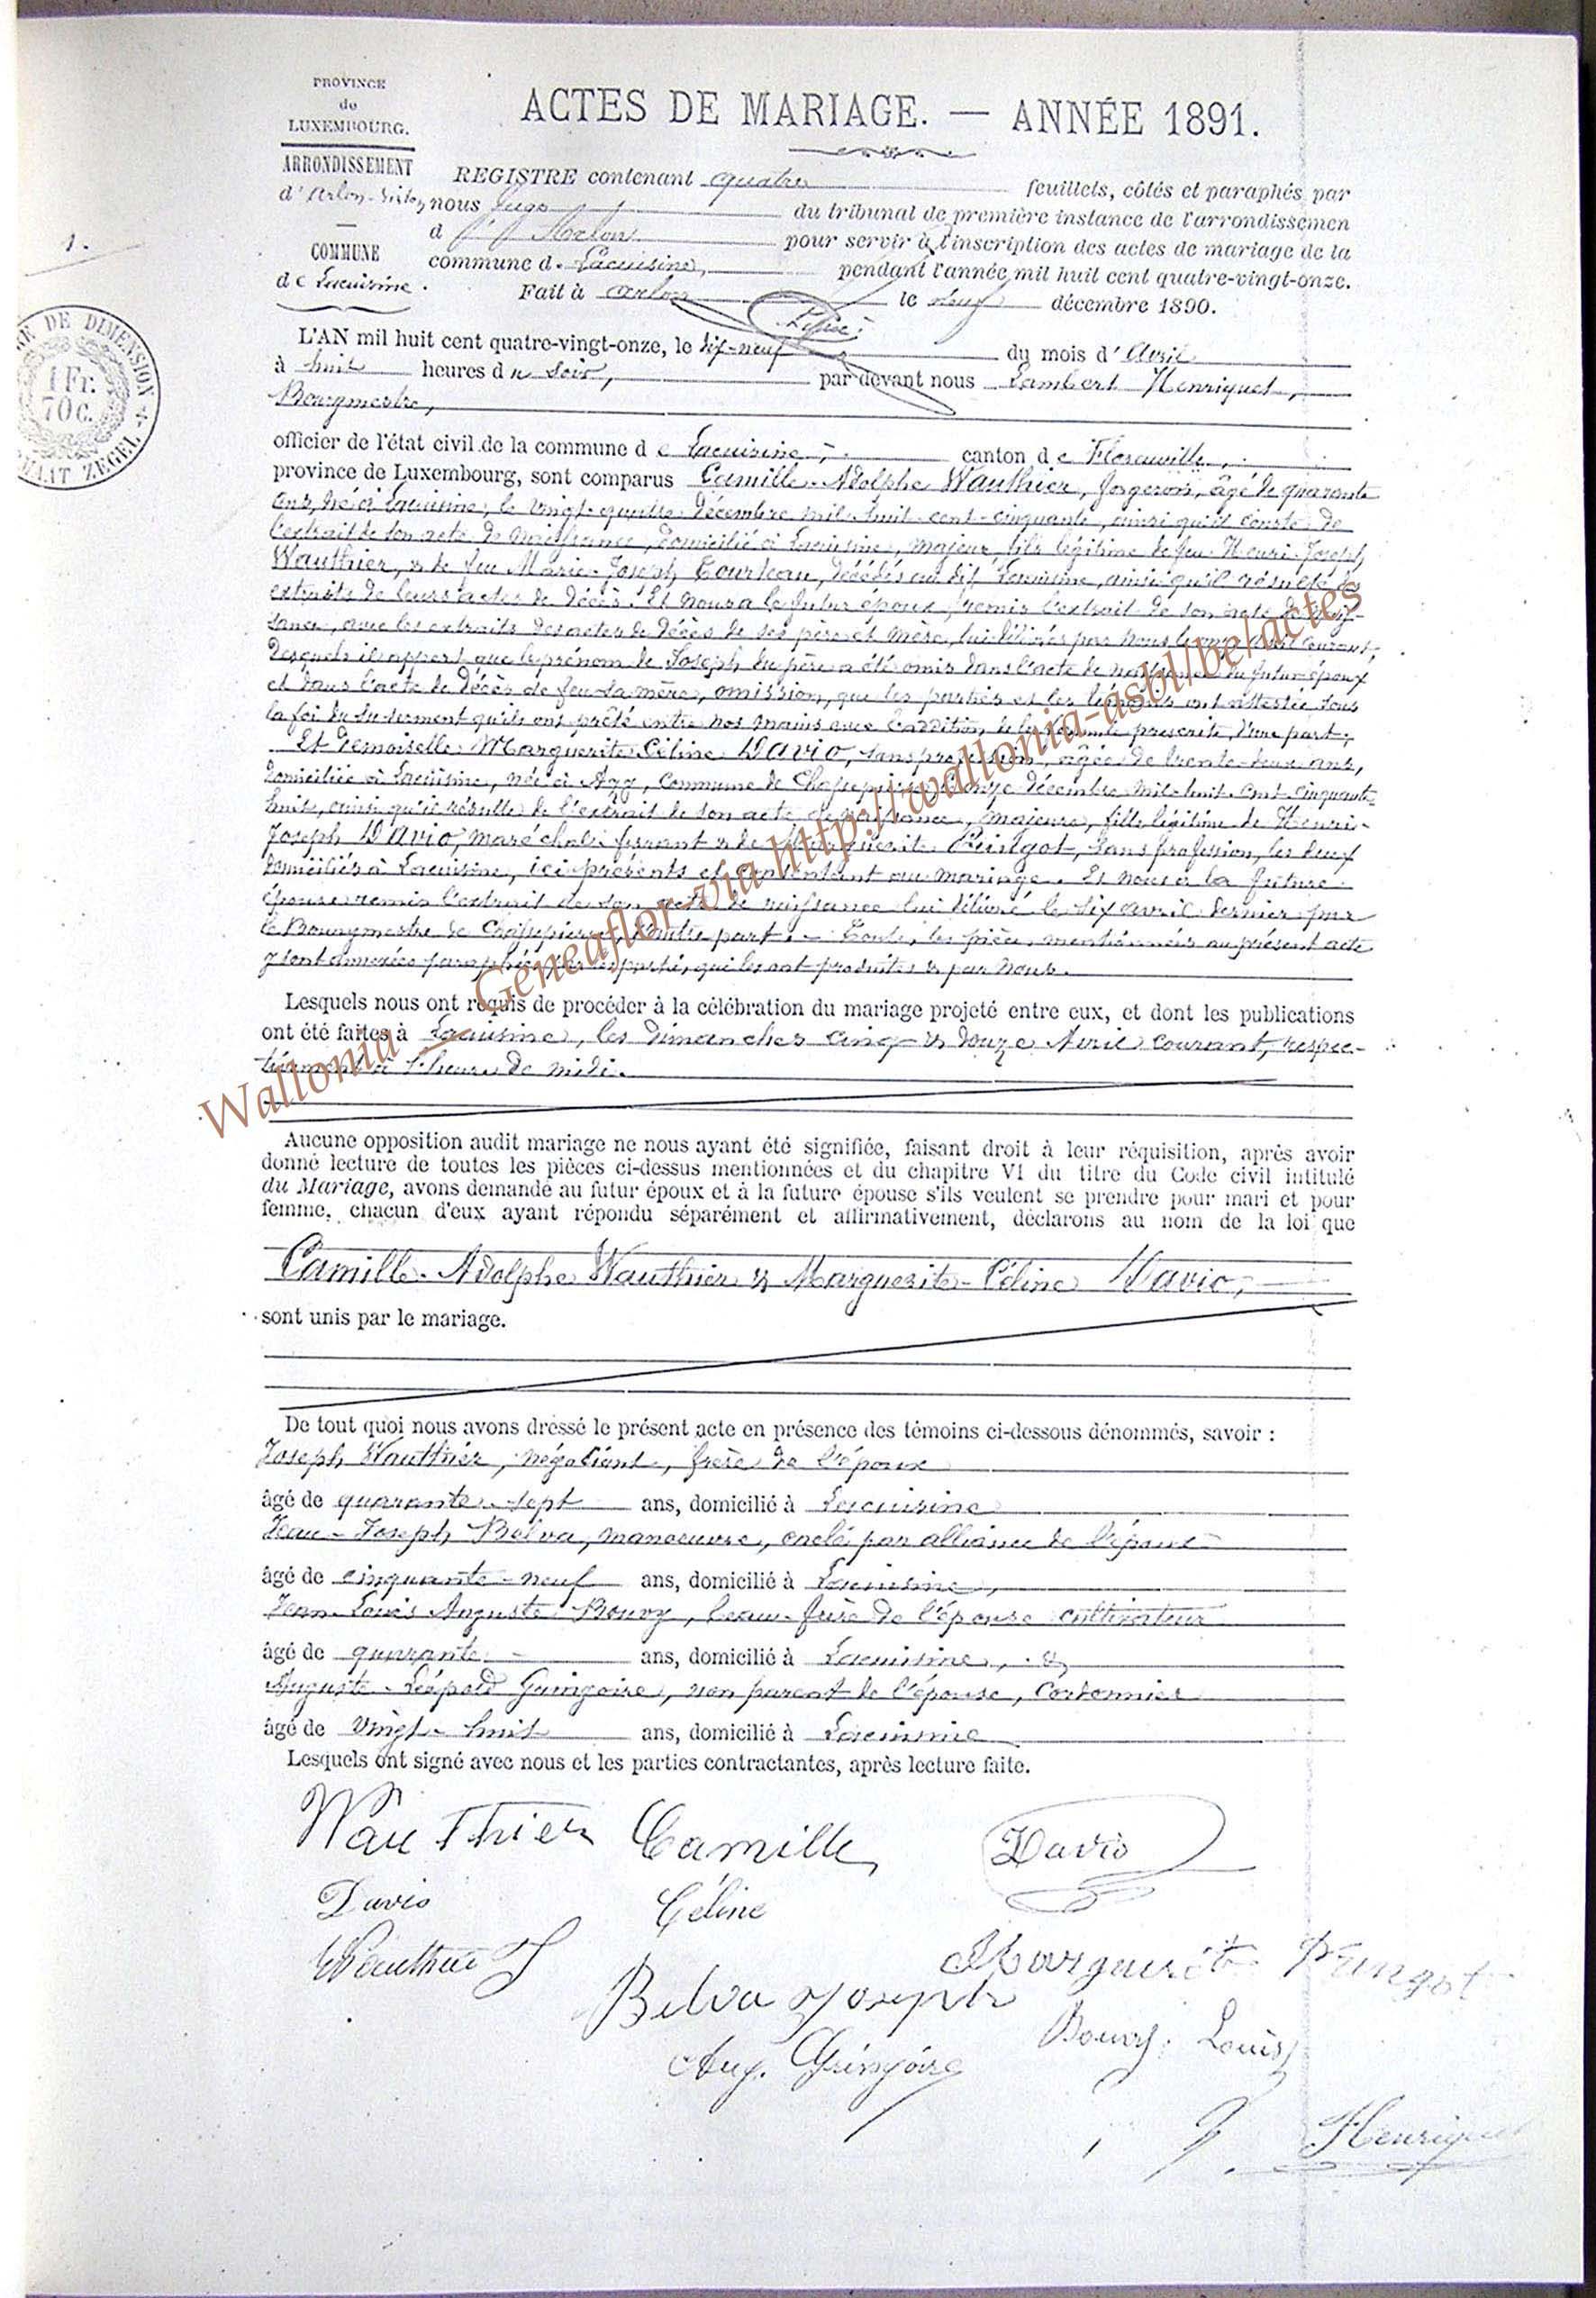 PROVINCE
de
LUXEMBOURG.
ARRONDISSEMENT
d'Arlon-Virton
COMMUNE
de Lacuisine.
1.
DE DIMENSION
1 Fr.
70c.
MAAT ZEGEL
ACTES DE MARIAGE. — ANNÉE 1891.
REGISTRE contenant quatre feuillets, côtés et paraphés par
nous Juge du tribunal de première instance de l'arrondissemen
d Arlon pour servir à l'inscription des actes de mariage de la
commune de Lacuisine, pendant l'année mil huit cent quatre-vingt-onze.
Fait à Arlon le neuf décembre 1890.
L'AN mil huit cent quatre-vingt-onze, le dix-neuf du mois d'Avril
à huit heures du soir, par devant nous Lambert Henriquet,
Bourgmestre,
officier de l'état civil de la commune de Lacuisine, canton de Florenville,
province de Luxembourg, sont comparus Camille-Adolphe Wauthier, forgeron, âgé de quarante
ans, né à Lacuisine, le vingt-quatre décembre mil-huit-cent-cinquante, ainsi qu'il conste de
l'extrait de son acte de naissance, domicilié à Lacuisine, majeur, fils légitime de feu Henri-Joseph
Wauthier, & de feu Marie-Joseph Tourteau, décédés au dit Lacuisine, ainsi qu'il résulte des
extraits de leurs actes de décès. Et nous a le futur époux remis l'extrait de son acte de nais-
sance, avec les extraits des actes de décès de ses père et mère, lui délivrés par nous le onze avril courant,
desquels il appert que le prénom de Joseph du père a été omis dans l'acte de naissance du futur époux
et dans l'acte de décès de feu sa mère, omission, que les parties et les témoins ont attestée sous
la foi du serment qu'ils ont prêté entre nos mains avec l'addition de la formule prescrite, d'une part;
Et Demoiselle Marguerite-Céline Davio, sans profession, âgée de trente-deux ans,
domiciliée à Lacuisine, née à Azy, commune de Chassepierre, le onze décembre mil-huit-cent-cinquante-
huit, ainsi qu'il résulte de l'extrait de son acte de naissance, majeure, fille légitime de Henri-
Joseph Davio, maréchal-ferrant & de Marguerite Pningot, sans profession, les deux
domiciliés à Lacuisine, ici présents et consentant au mariage. Et nous a la future
épouse remis l'extrait de son acte de naissance lui délivré le six avril dernier par
le Bourgmestre de Chassepierre, d'autre part. — Toutes les pièces mentionnées au présent acte
y sont annexées paraphées par les parties qui les ont produites & par nous.
Lesquels nous ont requis de procéder à la célébration du mariage projeté entre eux, et dont les publications
ont été faites à Lacuisine, les dimanches cinq & douze Avril courant, respec-
tivement à l'heure de midi.
Aucune opposition audit mariage ne nous ayant été signifiée, faisant droit à leur réquisition, après avoir
donné lecture de toutes les pièces ci-dessus mentionnées et du chapitre VI du titre du Code civil intitulé
du Mariage, avons demandé au futur époux et à la future épouse s'ils veulent se prendre pour mari et pour
femme, chacun d'eux ayant répondu séparément et affirmativement, déclarons au nom de la loi que
Camille-Adolphe Wauthier & Marguerite-Céline Davio,
sont unis par le mariage.
De tout quoi nous avons dressé le présent acte en présence des témoins ci-dessous dénommés, savoir :
Joseph Wauthier, négociant, frère de l'époux
âgé de quarante-sept ans, domicilié à Lacuisine
Jean-Joseph Belva, manoeuvre, oncle par alliance de l'époux
âgé de cinquante-neuf ans, domicilié à Lacuisine,
Jean-Louis Auguste Bouvy, beau-frère de l'épouse cultivateur
âgé de quarante ans, domicilié à Lacuisine, &
Auguste-Léopold Guingoire, non parent de l'épouse, cordonnier
âgé de vingt-huit ans, domicilié à Lacuisine
Lesquels ont signé avec nous et les parties contractantes, après lecture faite.
Wauthier Camille Davio
Davio Céline
Wauthier J Marguerite
Belva Joseph
Bouvy Louis
Aug. Gringoire
Henriquet
Wallonia - Geneaflor via http://wallonia-asbl/be/actes